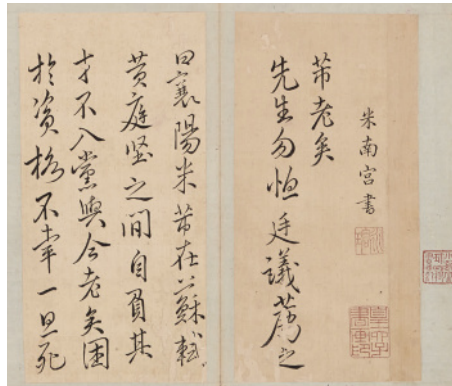 米南宫書
芾老矣
先生勿恤廷議薦之
曰襄陽米芾在蘇軾
黄庭坚之間自負其
才不入黨與今老矣困
於資格不幸一旦死